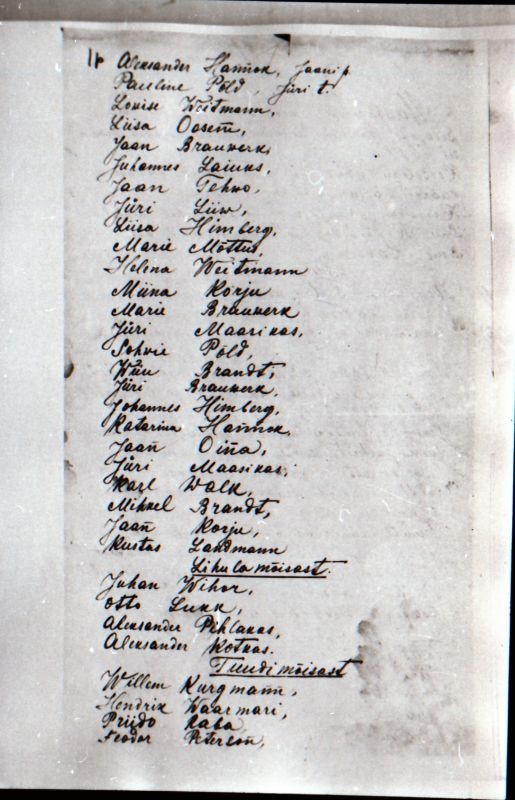 Aleksander Hannok, Jaani p.
Pauline Põld, Jüri t.
Lovise Weitmann,
Liisa Oosem̄,
Jaan Brauwerk,
Juhannes Laiuks,
Jaan Tehwo,
Jüri Liiw,
Liisa Himberg,
Marie Mõttus,
Helena Weitmann
Miina Korju
Marie Brauwerk
Jüri Maasikas,
Sohwie Põld,
Wiiu Brandt,
Jüri Brauwerk,
Johannes Himberg,
Katarina Hannok,
Jaan̄ Oin̄a,
Jüri Maasikas,
Karl Walk,
Mihkel Brandt,
Jaan̄ Korju,
Kustas Landmann
Lihula mõisast.
Juhan Wihor,
Otto Lukk,
Aleksander Pihlakas,
Aleksander Kotkas.
Tuudi mõisast
Willem Kurgman̄,
Hendrik Waarmari,
Priido Kaba,
Feodor Peterson̄,